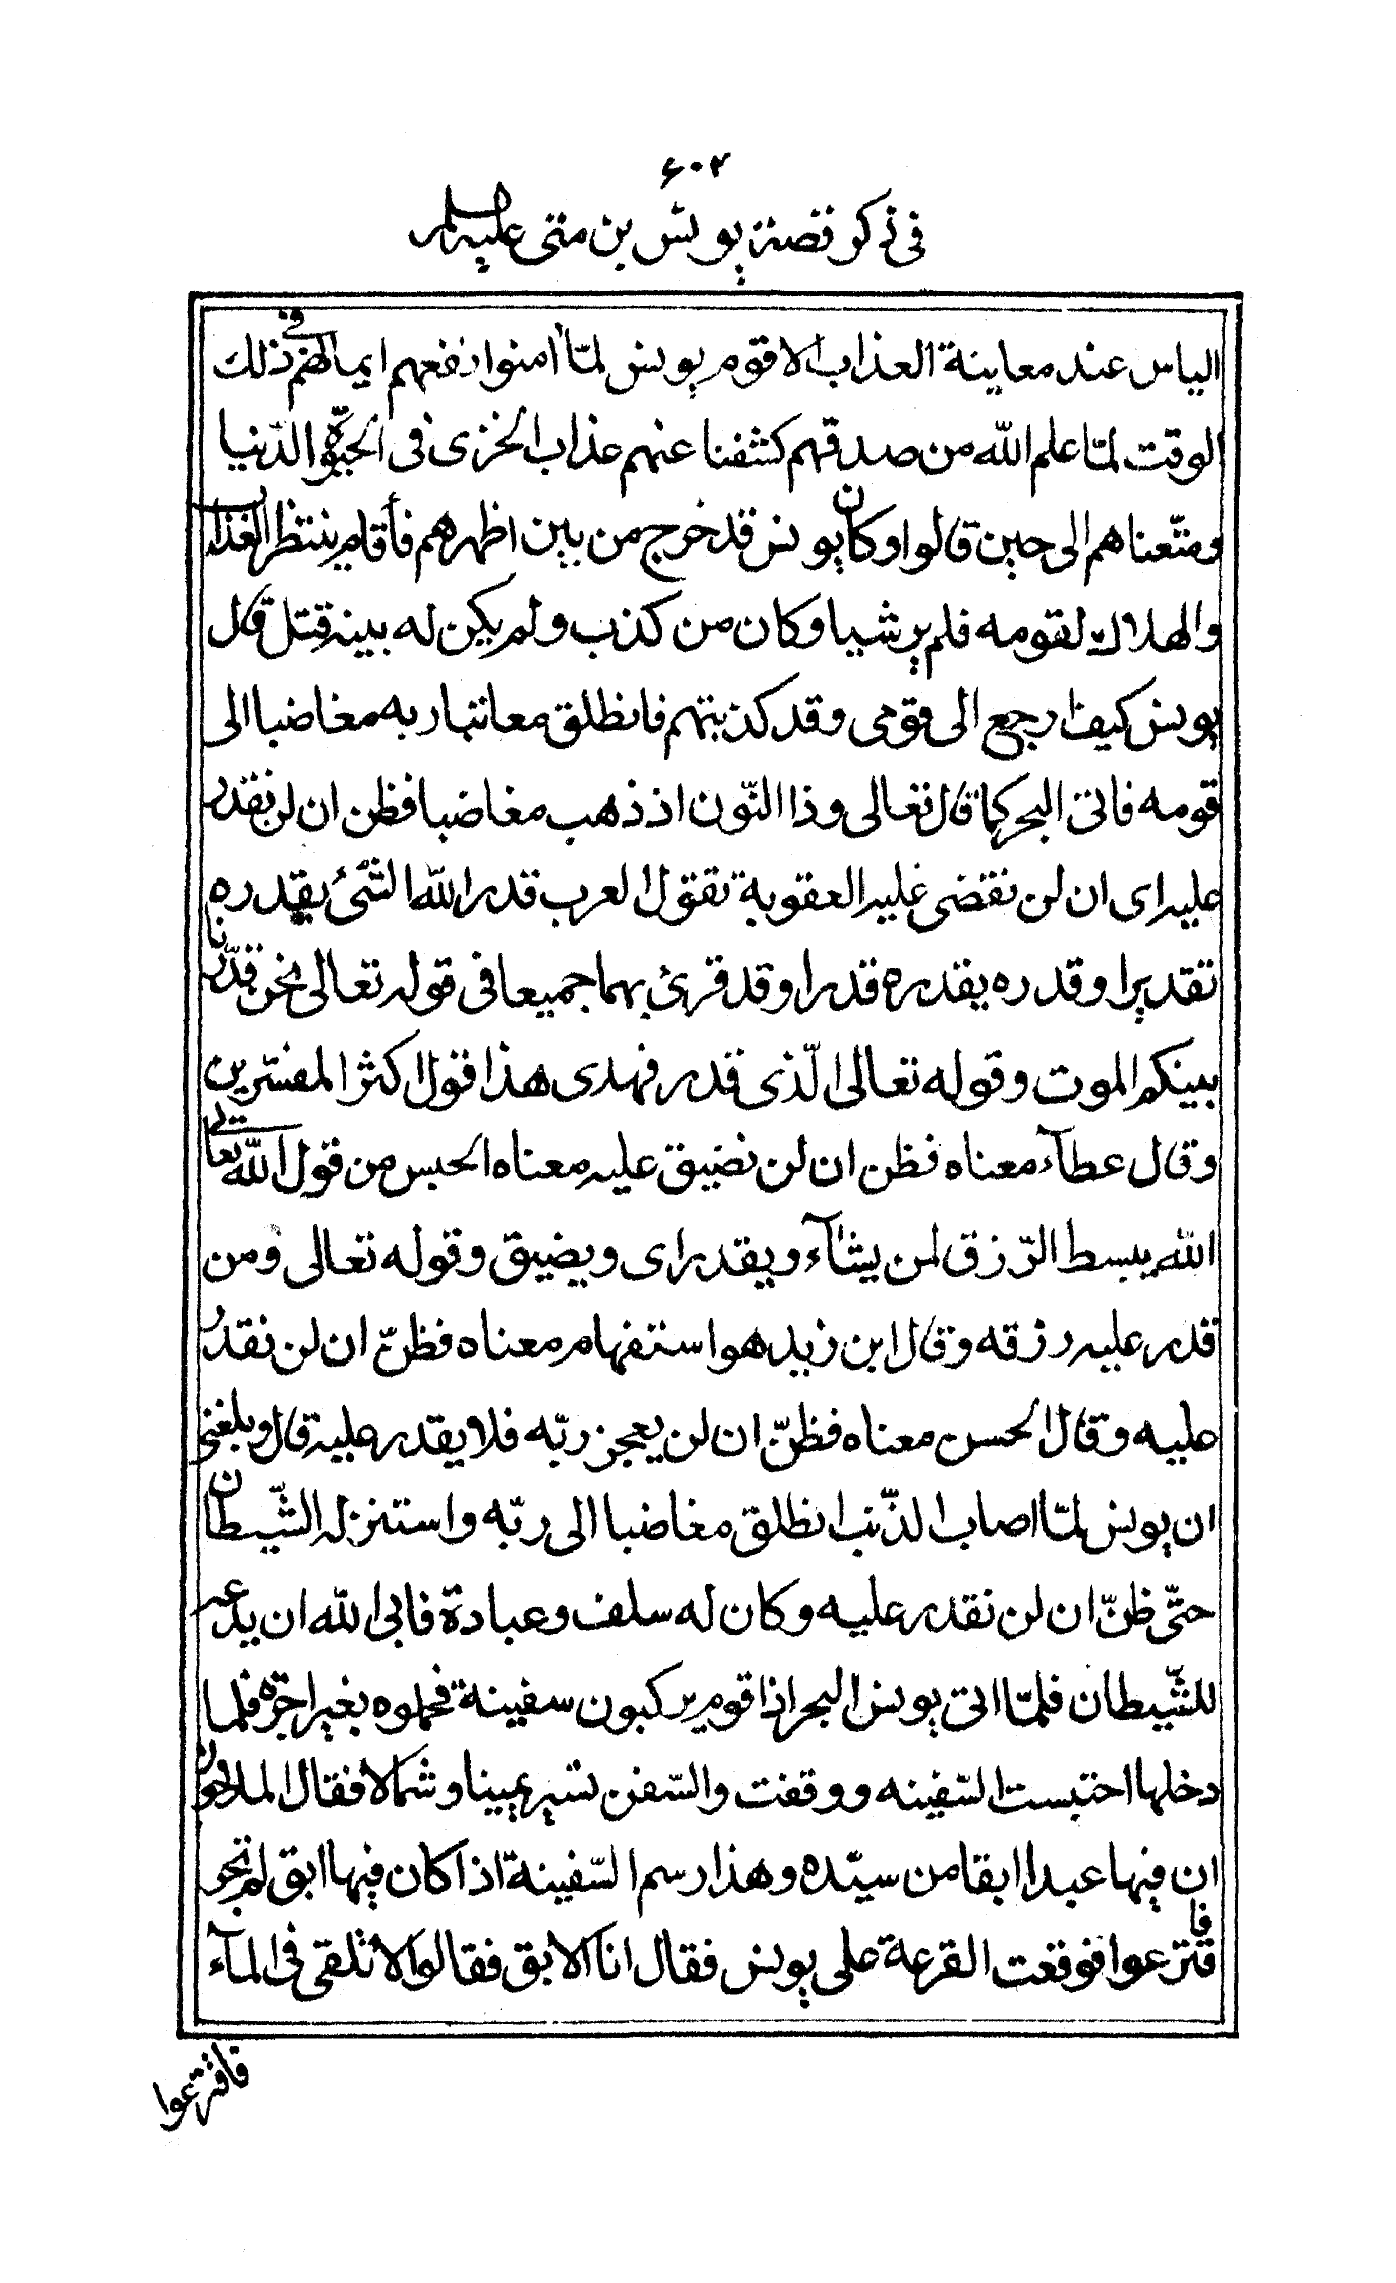 ۶۰۲
في ذكر قصة يونس بن متى عليه السلم
الياس عند معاينة العذاب الا قوم يونس لمّا امنوا نفعهم ايمانهم في ذلك
الوقت لمّا علم الله من صدقهم كشفنا عنهم عذاب الخزى فى الحيوة الدّنيا
ومتّعناهم الى حين قالوا وكان يونس قد خرج من بين اظهرهم فأقام ينتظر العذاب
والهلاك لقومه فلم ير شيا وكان من كذب ولم يكن له بينه قتل قال
يونس كيف ارجع الى قومى وقد كذبتهم فانطلق معاتبا ربه مغاضبا الى
قومه فاتى البحر كما قال تعالى وذا النّون اذ ذهب مغاضبا فظن ان لن نقدر
عليه اى ان لن نقضى عليه العقوبة تقول العرب قدر الله الشّئ يقدره
تقديرا وقدره يقدره قدرا وقد قرئ بهما جميعا فى قوله تعالى نحن قدّرنا
بينكم الموت وقوله تعالى الّذى قدر فهدى هذا قول اكثر المفسّرين
وقال عطآء معناه فظن ان لن نضيق عليه معناه الحبس من قول الله تعالى
الله يبسط الرّزق لمن يشآء ويقدر اى ويضيق وقوله تعالى ومن
قدر عليه رزقه وقال ابن زيد هو استفهام معناه فظنّ ان لن نقدر
عليه وقال الحسن معناه فظنّ ان لن يعجز ربّه فلا يقدر عليه قال وبلغنى
ان يونس لمّا اصاب الذّنب انطلق مغاضبا الى ربّه واستنزله الشّيطان
حتّى ظنّ ان لن نقدر عليه وكان له سلف وعبادة فابى الله ان يدعه
للشّيطان فلمّا اتى يونس البحر اذا قوم يركبون سفينة فحملوه بغير اجرة فلما
دخلها احتبست السّفينه ووقفت والسّفن تسير يمينا وشمالا فقال الملاحون
ان فيها عبدا ابقا من سيّده وهذا رسم السّفينة اذا كان فيها ابق لم تجر
فاقترعوا فوقعت القرعة على يونس فقال انا الابق فقالوا الا تلقى فى المآء
فاقترعوا